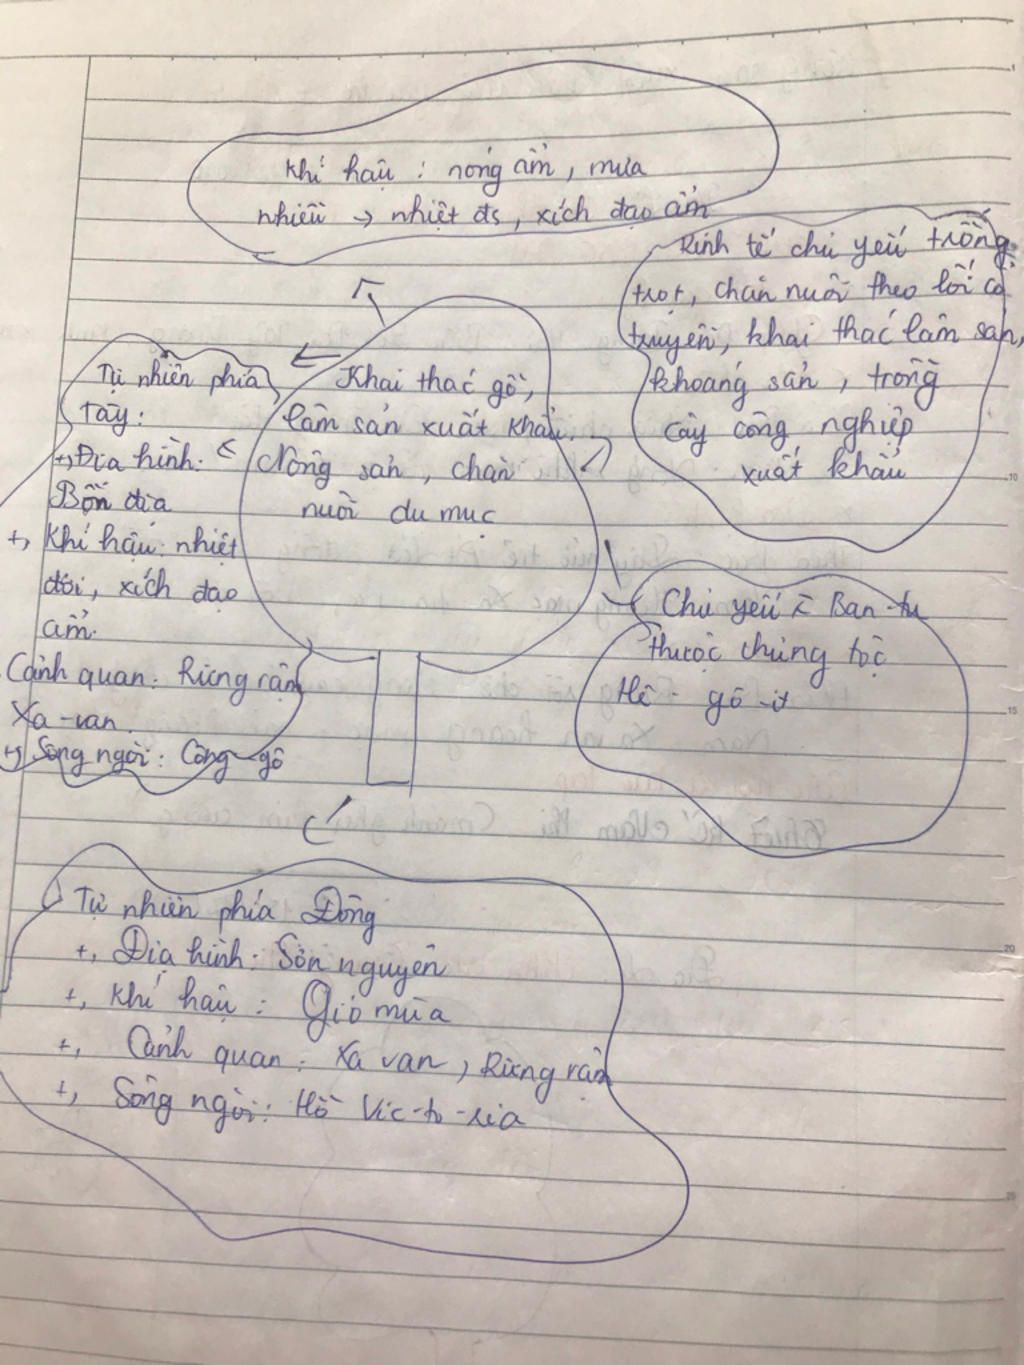 Khí hậu : nóng ẩm, mưa
nhiều → nhiệt đs, xích đạo ẩm
Kinh tế chủ yếu trồng
trọt, chăn nuôi theo lối cổ
truyền, khai thác lâm sản,
khoáng sản, trồng
cây công nghiệp
xuất khẩu
Khai thác gỗ,
lâm sản xuất khẩu.
Nông sản, chăn
nuôi du mục
Tự nhiên phía
Tây:
+, Địa hình:
Bồn địa
+, Khí hậu: nhiệt
đới, xích đạo
ẩm.
Cảnh quan: Rừng rậm
Xa-van.
+, Sông ngòi: Công-gô
Chủ yếu là Ban-tu
thuộc chủng tộc
Nê-gô-it
Tự nhiên phía Đông
+, Địa hình: Sơn nguyên
+, Khí hậu : Gió mùa
+, Cảnh quan: Xa van, Rừng rậm
+, Sông ngòi: Hồ Vic-to-ria